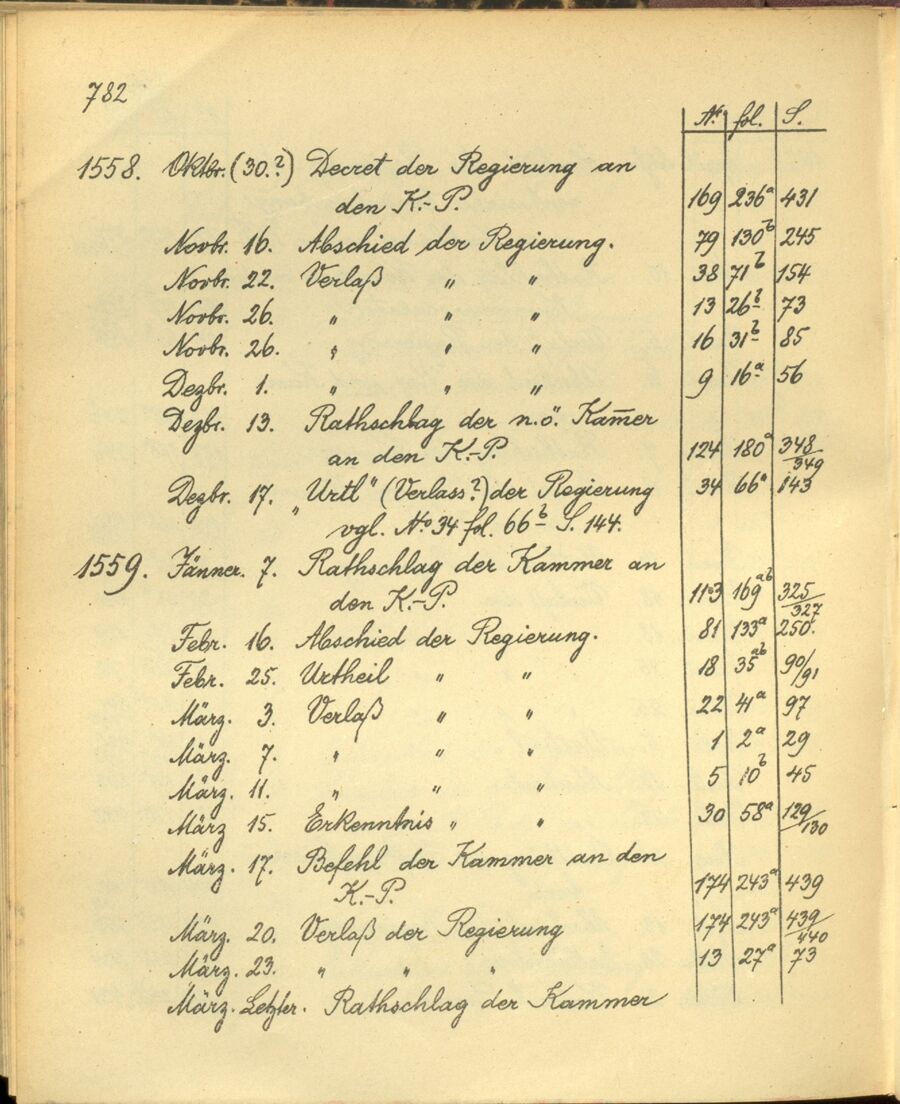 782
No. fol. S.
1558. Oktbr. (30.?) Decret der Regierung an
den K.-P. 169 236a 431
Novbr. 16. Abschied der Regierung. 79 130b 245
Novbr. 22. Verlaß " " 38 71b 154
Novbr. 26. " " " 13 26b 73
Novbr. 26. " " " 16 31b 85
Dezbr. 1. " " " 9 16a 56
Dezbr. 13. Rathschlag der n.ö. Kam̄er
an den K.-P. 124 180a 348/349
Dezbr. 17. "Urtl" (Verlass?) der Regierung 34 66a 143
vgl. No 34 fol. 66b S. 144.
1559. Jänner. 7. Rathschlag der Kammer an
den K.-P. 113 169ab 325/327
Febr. 16. Abschied der Regierung. 81 133a 250.
Febr. 25. Urtheil " " 18 35ab 90/91
März. 3. Verlaß " " 22 41a 97
März. 7. " " " 1 2a 29
März. 11. " " " 5 10b 45
März 15. Erkenntnis " " 30 58a 129/130
März. 17. Befehl der Kammer an den
K.-P. 174 243a 439
März. 20. Verlaß der Regierung 174 243a 439/440
März. 23. " " " 13 27a 73
März. Letzter. Rathschlag der Kammer